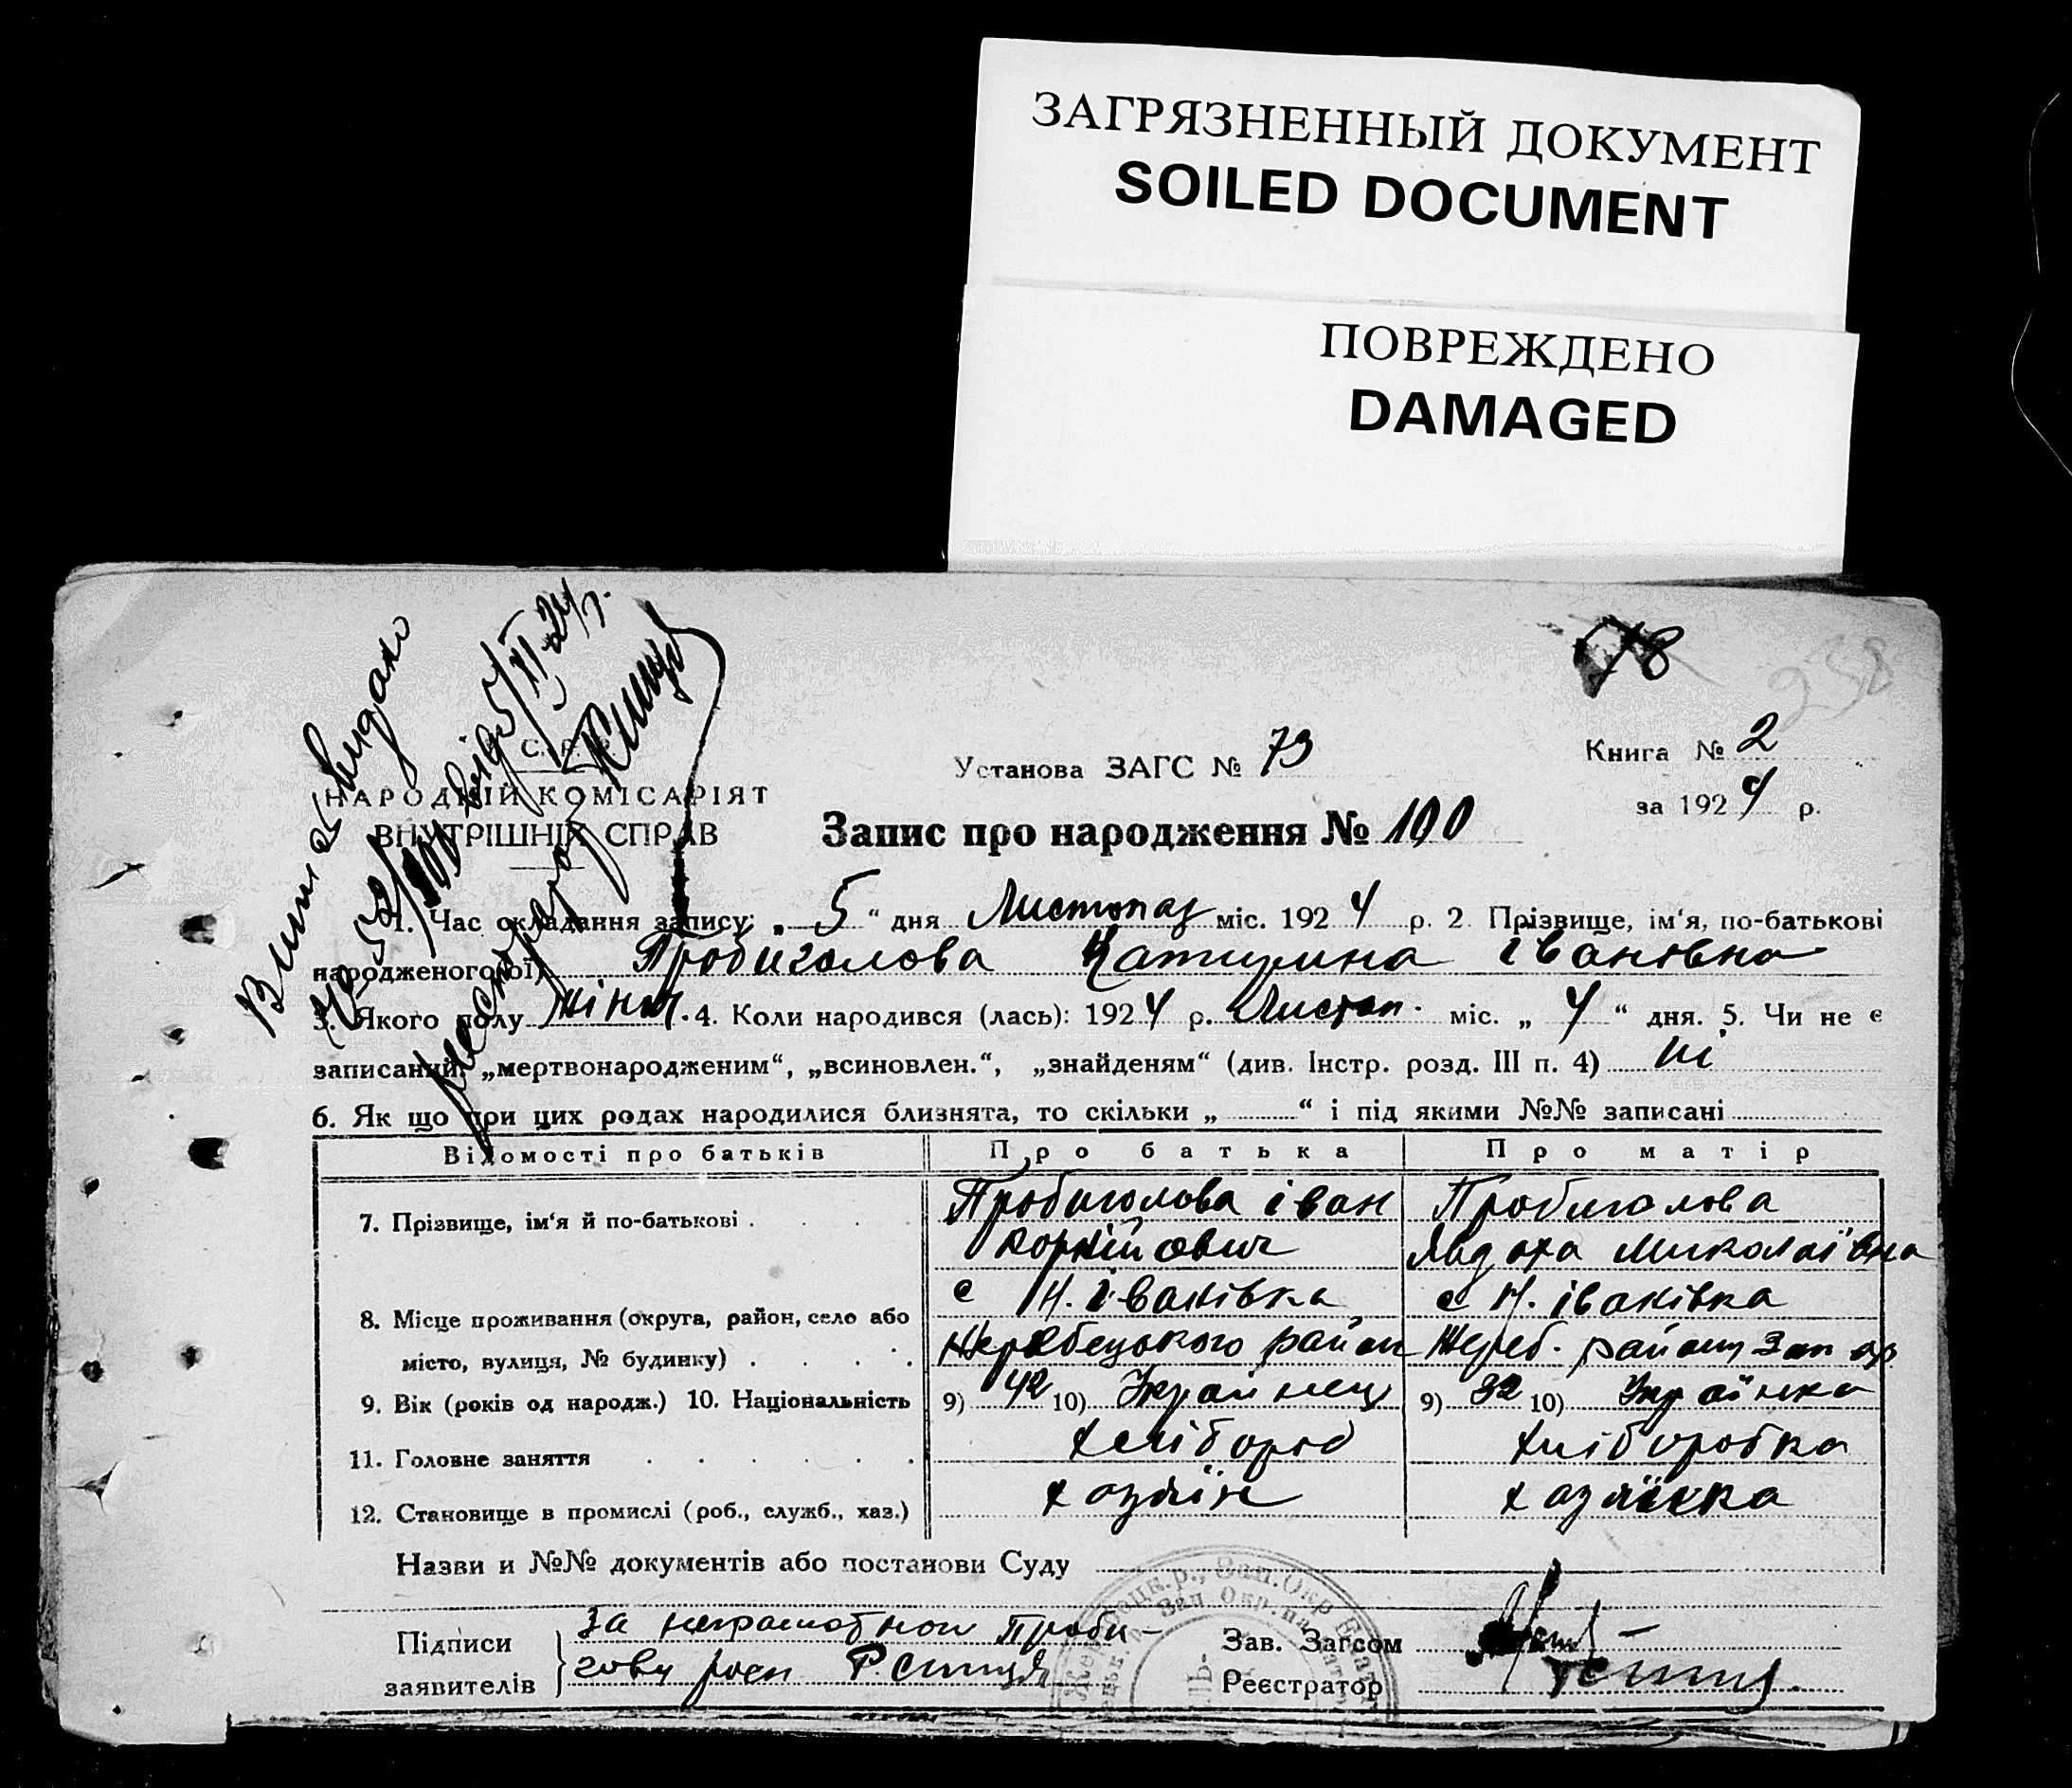 ЗАГРЯЗНЕННЫЙ ДОКУМЕНТ
SOILED DOCUMENT
ПОВРЕЖДЕНО
DAMAGED
78
238
Виписъ видано
№ 52/100 від 5/XI-24 р.
НАРОДНІЙ КОМІСАРІЯТ
ВНУТРІШНІХ СПРАВ
Установа ЗАГС № 73
Книга № 2
за 1924 р.
Запис про народження № 100
1. Час складання запису: „ 5 “ дня Листопад міс. 1924 р. 2 Прізвище, ім'я, по-батькові
народженого(ої) Пробиголова Катирина Івановна
3. Якого полу жіноч. 4. Коли народився (лась): 1924 р. Листоп. міс. „ 4 “ дня. 5. Чи не є
записаний „мертвонародженим“, „всиновлен.“, „знайденям“ (див. Інстр. розд. III п. 4) ні
6. Як що при цих родах народилися близнята, то скільки „ “ і під якими №№ записані
Відомості про батьків Про батька Про матір
7. Прізвище, ім'я й по-батькові . Пробиголова Іван Пробиголова
Корнійович Явдоха Миколаївна
с Н. Іванівка с Н. Іванівка
8. Місце проживання (округа, район, село або
місто, вулиця, № будинку) . Жеребецького район Жереб. району Зап ор
9. Вік (років од народж.) 10. Національність 9) 42 10) Українец 9) 32 10) Українка
11. Головне заняття хлібороб хлiборобка
12. Становище в промислі (роб., служб., хаз.) хазяїн хазяїкка
Назви и №№ документів або постанови Суду
Підписи заявителів За неграмотного Проби-
голову росп
Зав. Загсом
Реєстратор